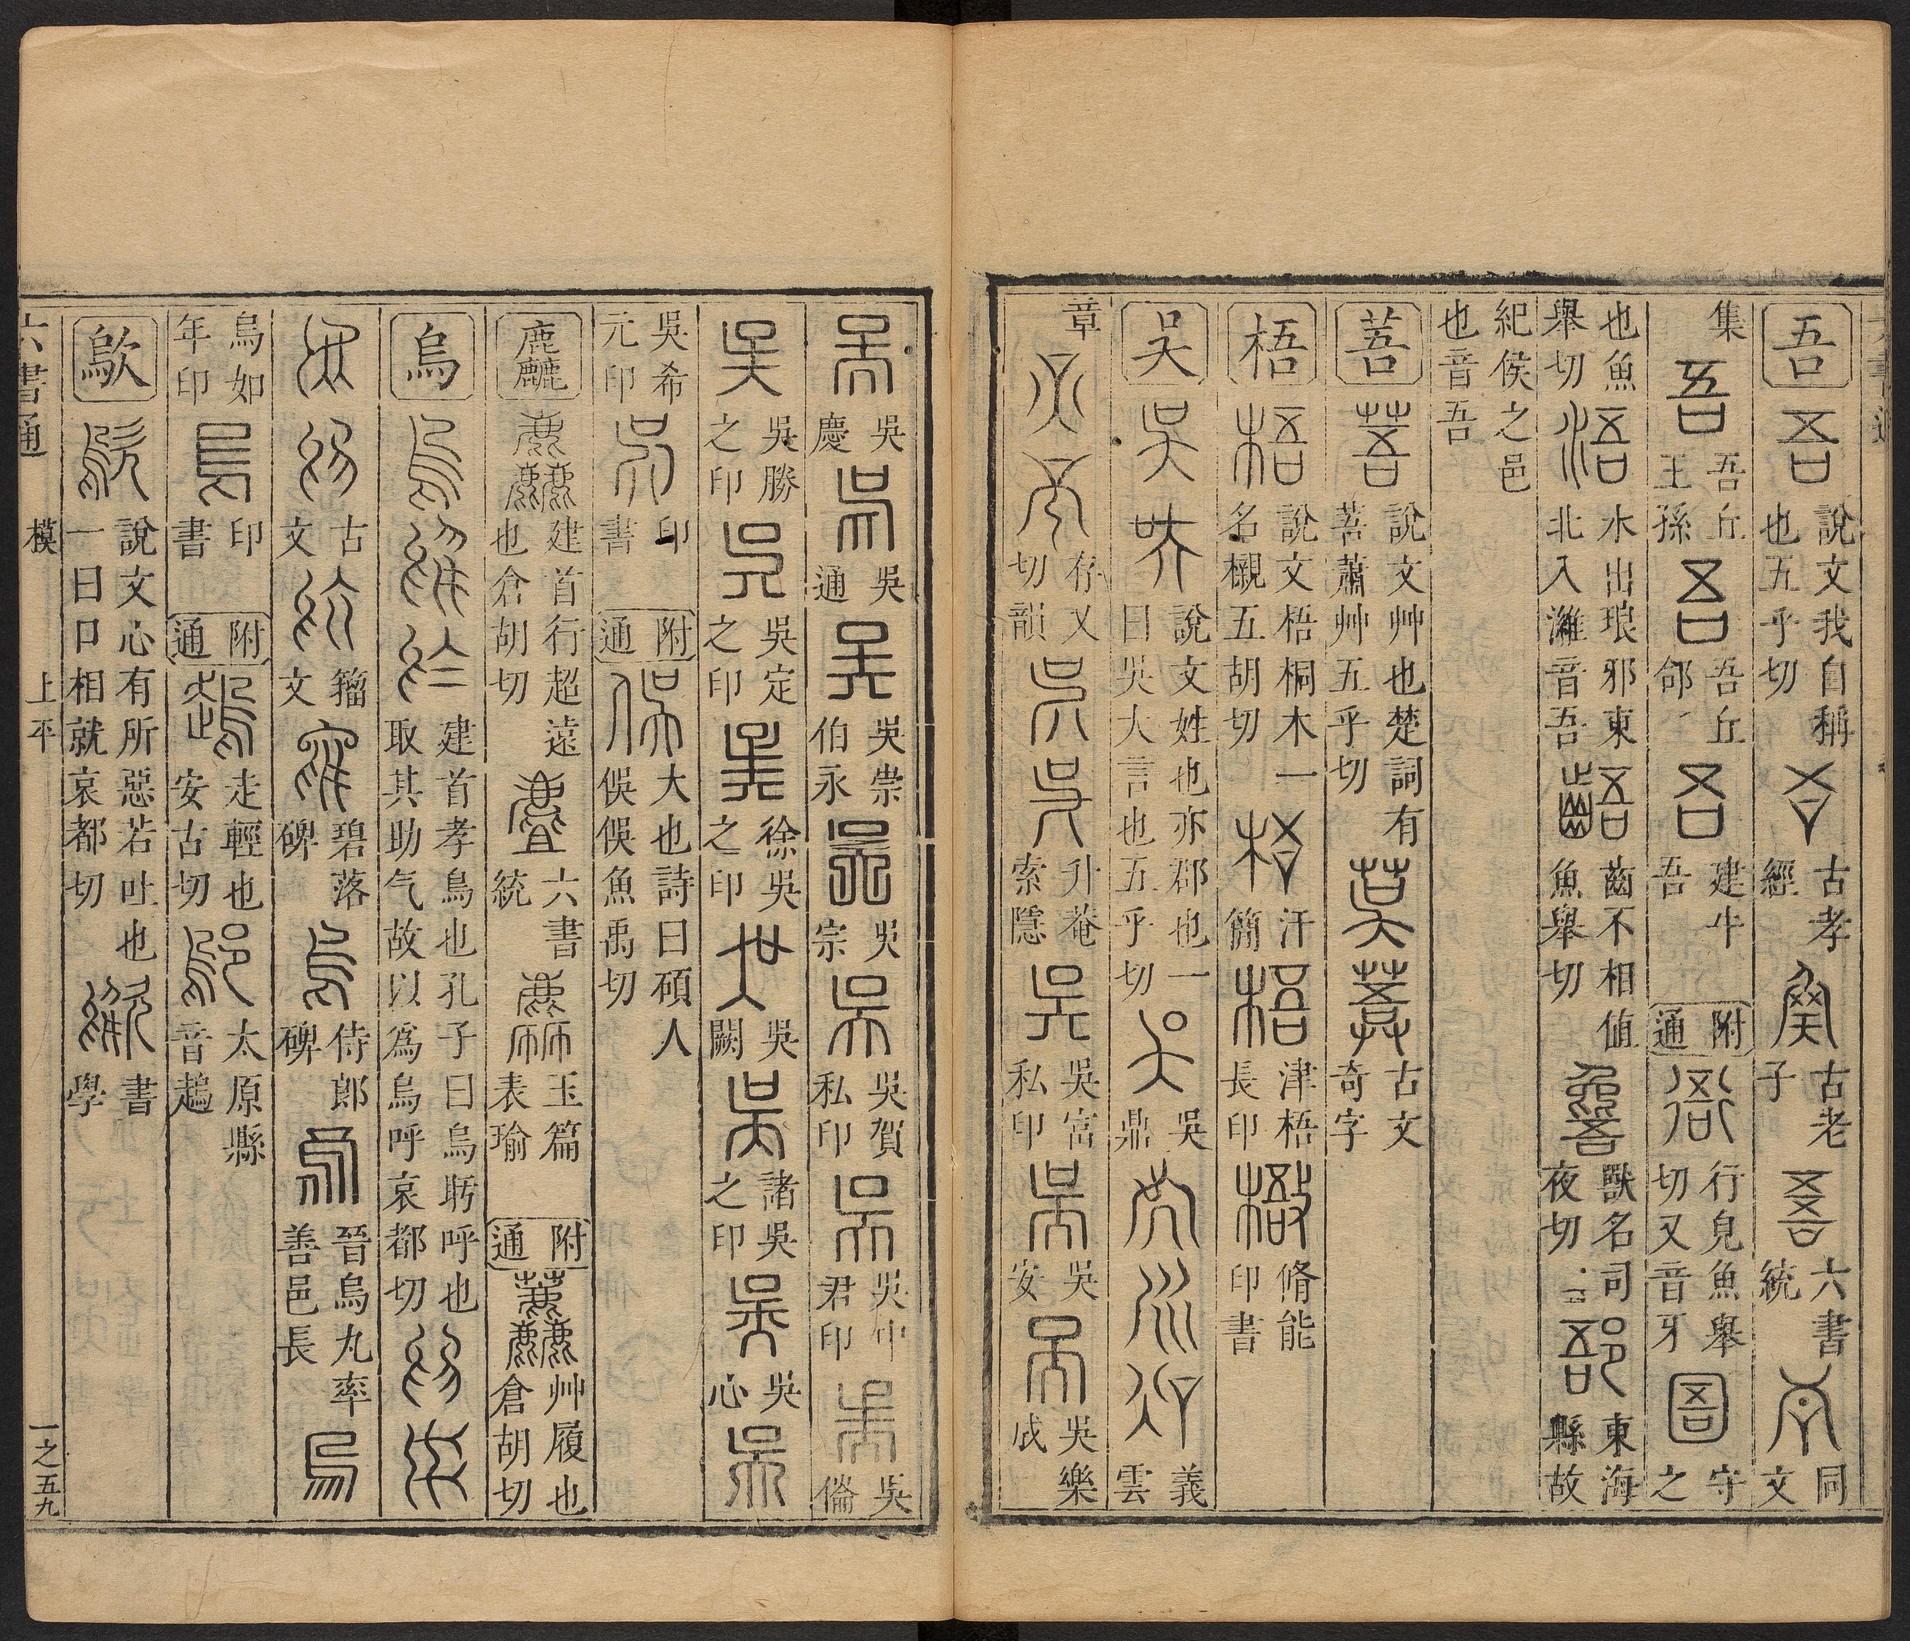 吾 吾 說文我自稱也五乎切 古孝經 古老子 六書統 同文
集 吾 吾丘王孫 吾丘郃 建牛吾 附通 衙 行皃魚舉切又音牙 圄 守之
也魚舉切 浯 水出琅邪東北入濰音吾 齬 齒不相値魚舉切 獸名司夜切 郚 東海縣故
紀侯之邑也音吾
菩 菩 說文艸也楚詞有菩蕭艸五乎切 古文奇字
梧 梧 說文梧桐木一名櫬五胡切 汗簡 津梧長印 脩能印書
吳 吳 說文姓也亦郡也一曰吳大言也五乎切 吳鼎 義雲
章 存乂切韻 升菴索隱 吳富私印 吳安 吳樂成
吳 吳慶 吳通 吳崇伯永 吳宗 吳賀私印 吳中君印 吳倫
吳 吳勝之印 吳定之印 徐吳之印 吳闕 諸吳之印 吳心
吳希元印 印書 附通 俁 大也詩曰碩人俁俁魚禹切
麤 麤 建首行超遠也倉胡切 六書統 玉篇 表瑜 附通 艸履也倉胡切
烏 烏 建首孝鳥也孔子曰烏盱呼也取其助气故以爲烏呼哀都切
古文 籀文 碧落碑 侍郎碑 晉烏丸率善邑長
烏如年印 印書 附通 走輕也安古切 鄔 太原縣音趨
歍 歍 說文心有所惡若吐也一曰口相就哀都切 書學
六書通 模 上平 一之五九